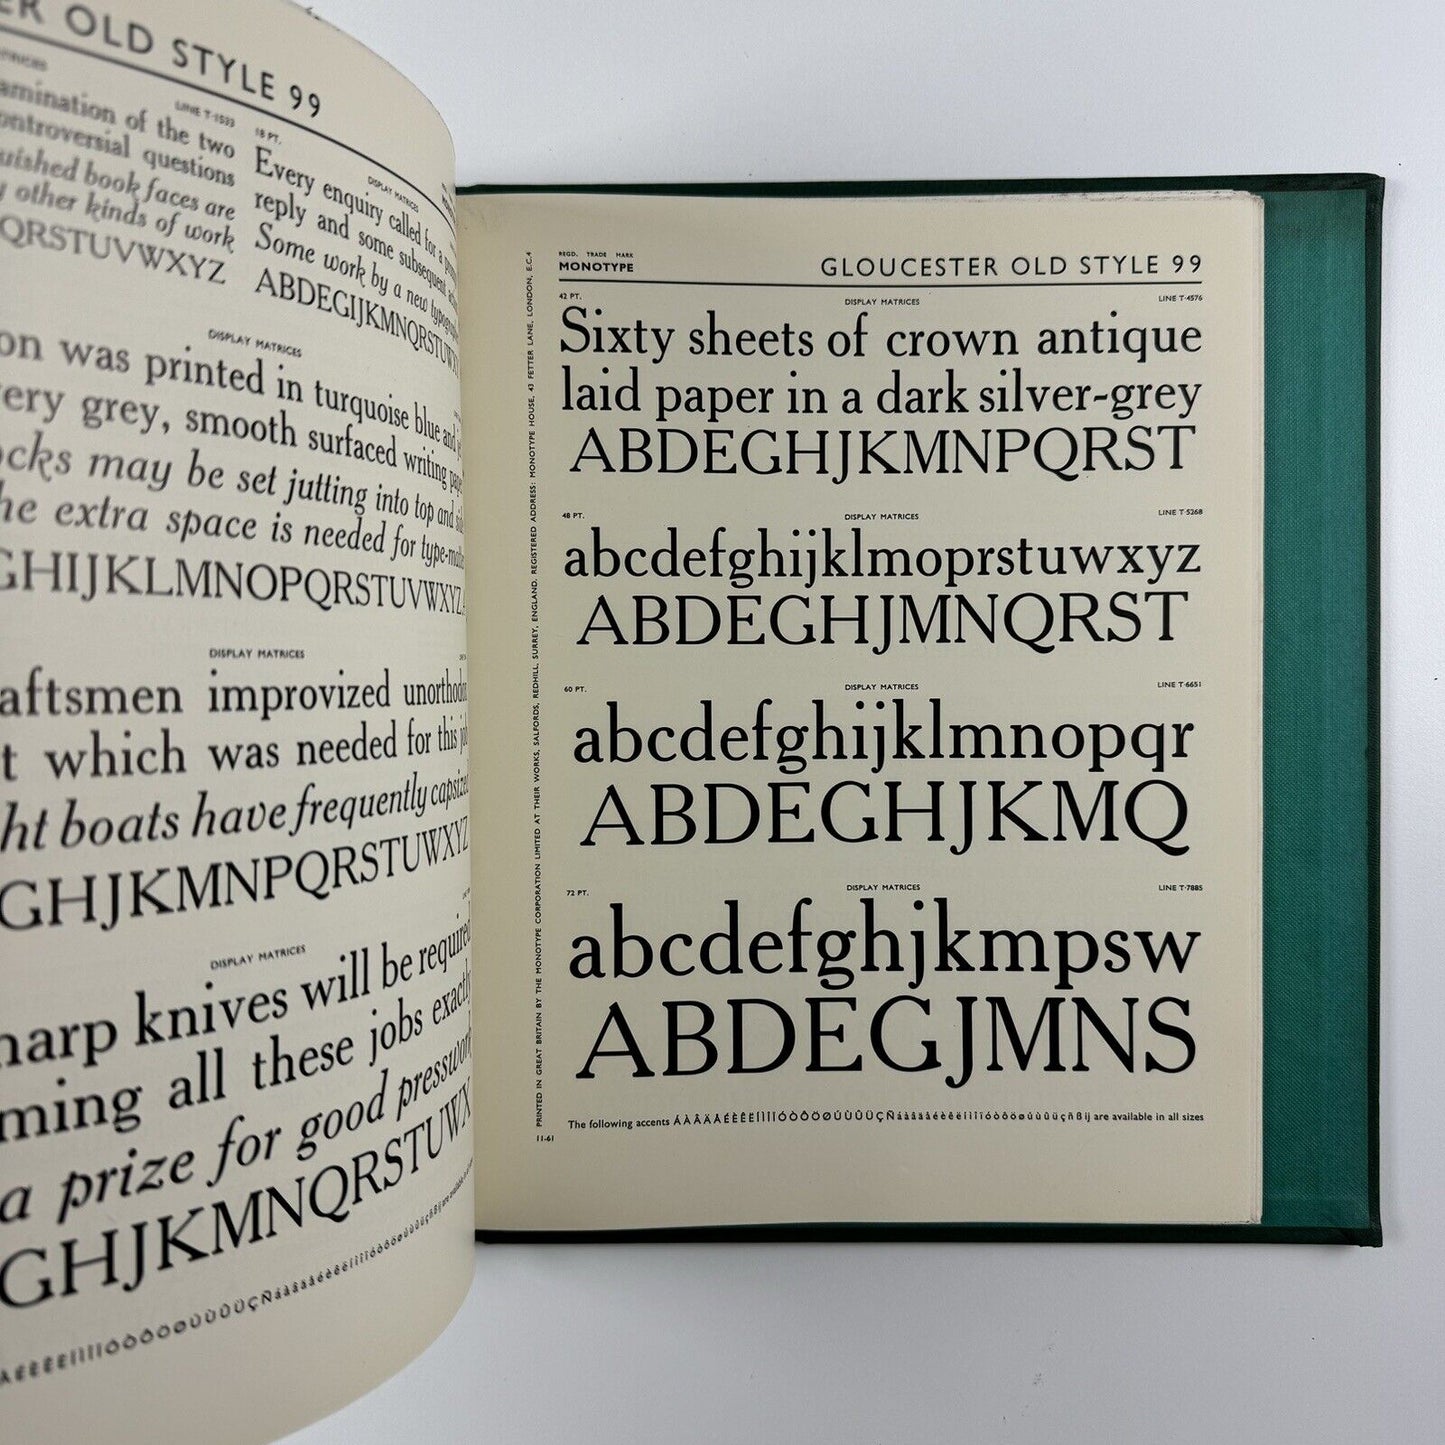 ER OLD STYLE 99
MATRICES
LINE T·1533
amination of the two
ontroversial questions
uished book faces are
y other kinds of work
QRSTUVWXYZ
18 PT.
DISPLAY MATRICES
Every enquiry called for a
reply and some subsequent
Some work by a new
ABDEGIJKMNQRSTUVWXY
DISPLAY MATRICES
on was printed in turquoise blue and
ery grey, smooth surfaced writing
ocks may be set jutting into top and
he extra space is needed for
GHIJKLMNOPQRSTUVWXYZ
DISPLAY MATRICES
aftsmen improvized
t which was needed for this
ht boats have frequently capsized
GHJKMNPQRSTUWXYZ
DISPLAY MATRICES
harp knives will be required
ming all these jobs exactly
a prize for good presswork
GHJKMNQRSTUWX
REGD. TRADE MARK
MONOTYPE
GLOUCESTER OLD STYLE 99
42 PT.
DISPLAY MATRICES
LINE T·4576
Sixty sheets of crown antique
laid paper in a dark silver-grey
ABDEGHJKMNPQRST
48 PT.
DISPLAY MATRICES
LINE T·5268
abcdefghijklmoprstuwxyz
ABDEGHJMNQRST
60 PT.
DISPLAY MATRICES
LINE T·6651
abcdefghijklmnopqr
ABDEGHJKMQ
72 PT.
DISPLAY MATRICES
LINE T·7885
abcdefghjkmpsw
ABDEGJMNS
The following accents ÁÀÂÄÅÉÈÊËÍÌÎÏÓÒÔÖØÚÙÛÜÇÑáàâäåéèêëíìîïóòôöøúùûüçñßij are available in all sizes
11-61
PRINTED IN GREAT BRITAIN BY THE MONOTYPE CORPORATION LIMITED AT THEIR WORKS, SALFORDS, REDHILL, SURREY, ENGLAND. REGISTERED ADDRESS: MONOTYPE HOUSE, 43 FETTER LANE, LONDON, E.C.4